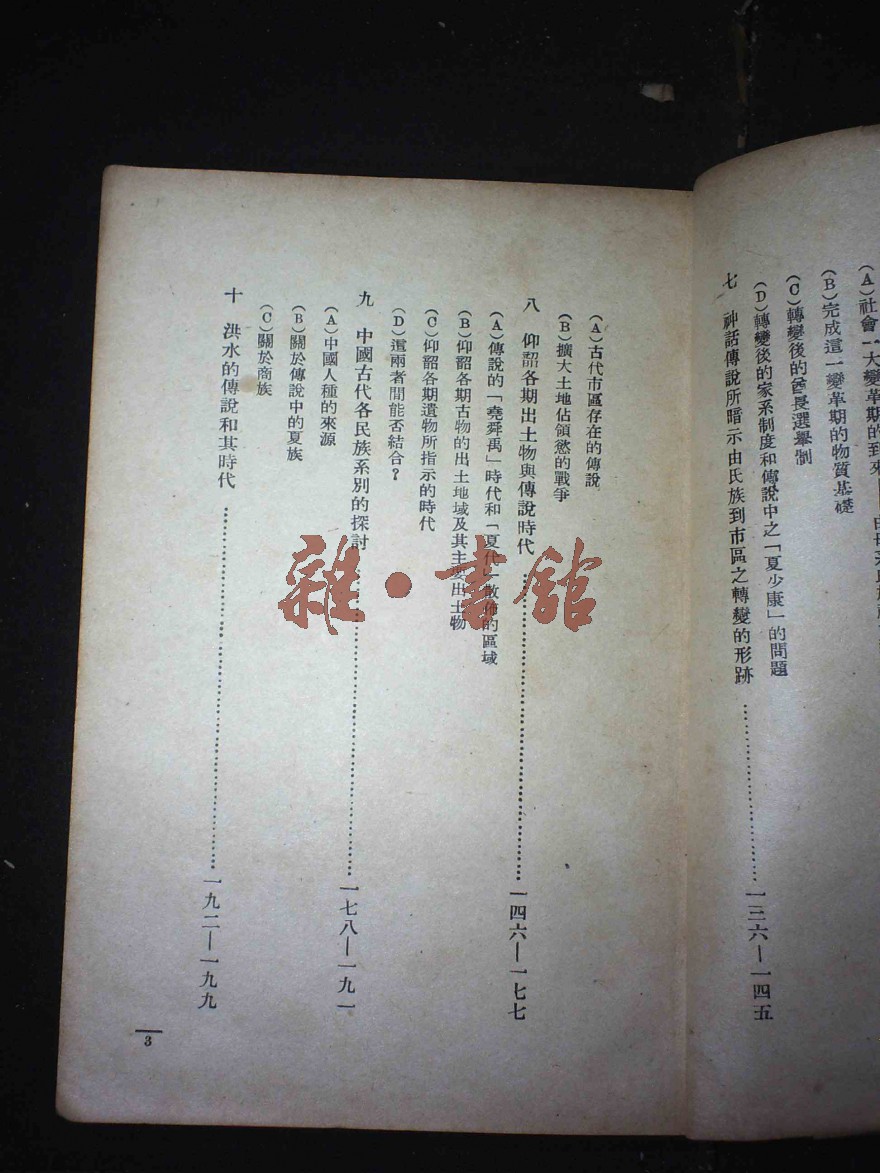 （A）社會一大變革期的到來
（B）完成這一變革期的物質基礎
（C）轉變後的酋長選舉制
（D）轉變後的家系制度和傳說中之「夏少康」的問題
七　神話傳說所暗示由氏族到市區之轉變的形跡……一三六—一四五
（A）古代市區存在的傳說
（B）擴大土地佔領慾的戰爭
八　仰韶各期出土物與傳說時代……一四六—一七七
（A）傳說的「堯舜禹」時代和「夏代」散佈的區域
（B）仰韶各期古物的出土地域及其主要出土物
（C）仰韶各期遺物所指示的時代
（D）這兩者間能否結合？
九　中國古代各民族系別的探討……一七八—一九一
（A）中國人種的來源
（B）關於傳說中的夏族
（C）關於商族
十　洪水的傳說和其時代……一九二—一九九
3
雜·書館